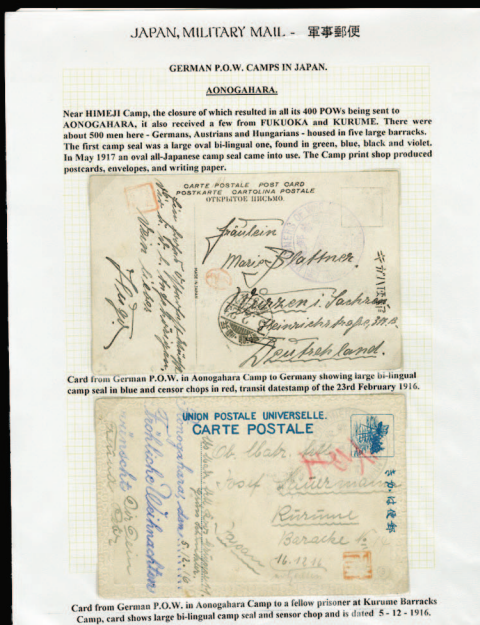 JAPAN, MILITARY MAIL - 軍事郵便
GERMAN P.O.W. CAMPS IN JAPAN.
AONOGAHARA.
Near HIMEJI Camp, the closure of which resulted in all its 400 POWs being sent to
AONOGAHARA, it also received a few from FUKUOKA and KURUME. There were
about 500 men here - Germans, Austrians and Hungarians - housed in five large barracks.
The first camp seal was a large oval bi-lingual one, found in green, blue, black and violet.
In May 1917 an oval all-Japanese camp seal came into use. The Camp print shop produced
postcards, envelopes, and writing paper.
CARTE POSTALE POST CARD
POSTKARTE CARTOLINA POSTALE
ОТКРЫТОЕ ПИСЬМО.
Fräulein
Maria Blattner.
Wurzen i. Sachsen
Heinrichstraße,
Deutschland.
Hugo
Card from German P.O.W. in Aonogahara Camp to Germany showing large bi-lingual
camp seal in blue and censor chops in red, transit datestamp of the 23rd February 1916.
UNION POSTALE UNIVERSELLE.
CARTE POSTALE
きがは便郵
Josef
Kurume
Baracke
16.12.16
Japan
Aonogahara, den 5.12.16
Fröhliche Weihnachten
wünscht Dir Dein
Card from German P.O.W. in Aonogahara Camp to a fellow prisoner at Kurume Barracks
Camp, card shows large bi-lingual camp seal and sensor chop and is dated 5 - 12 - 1916.